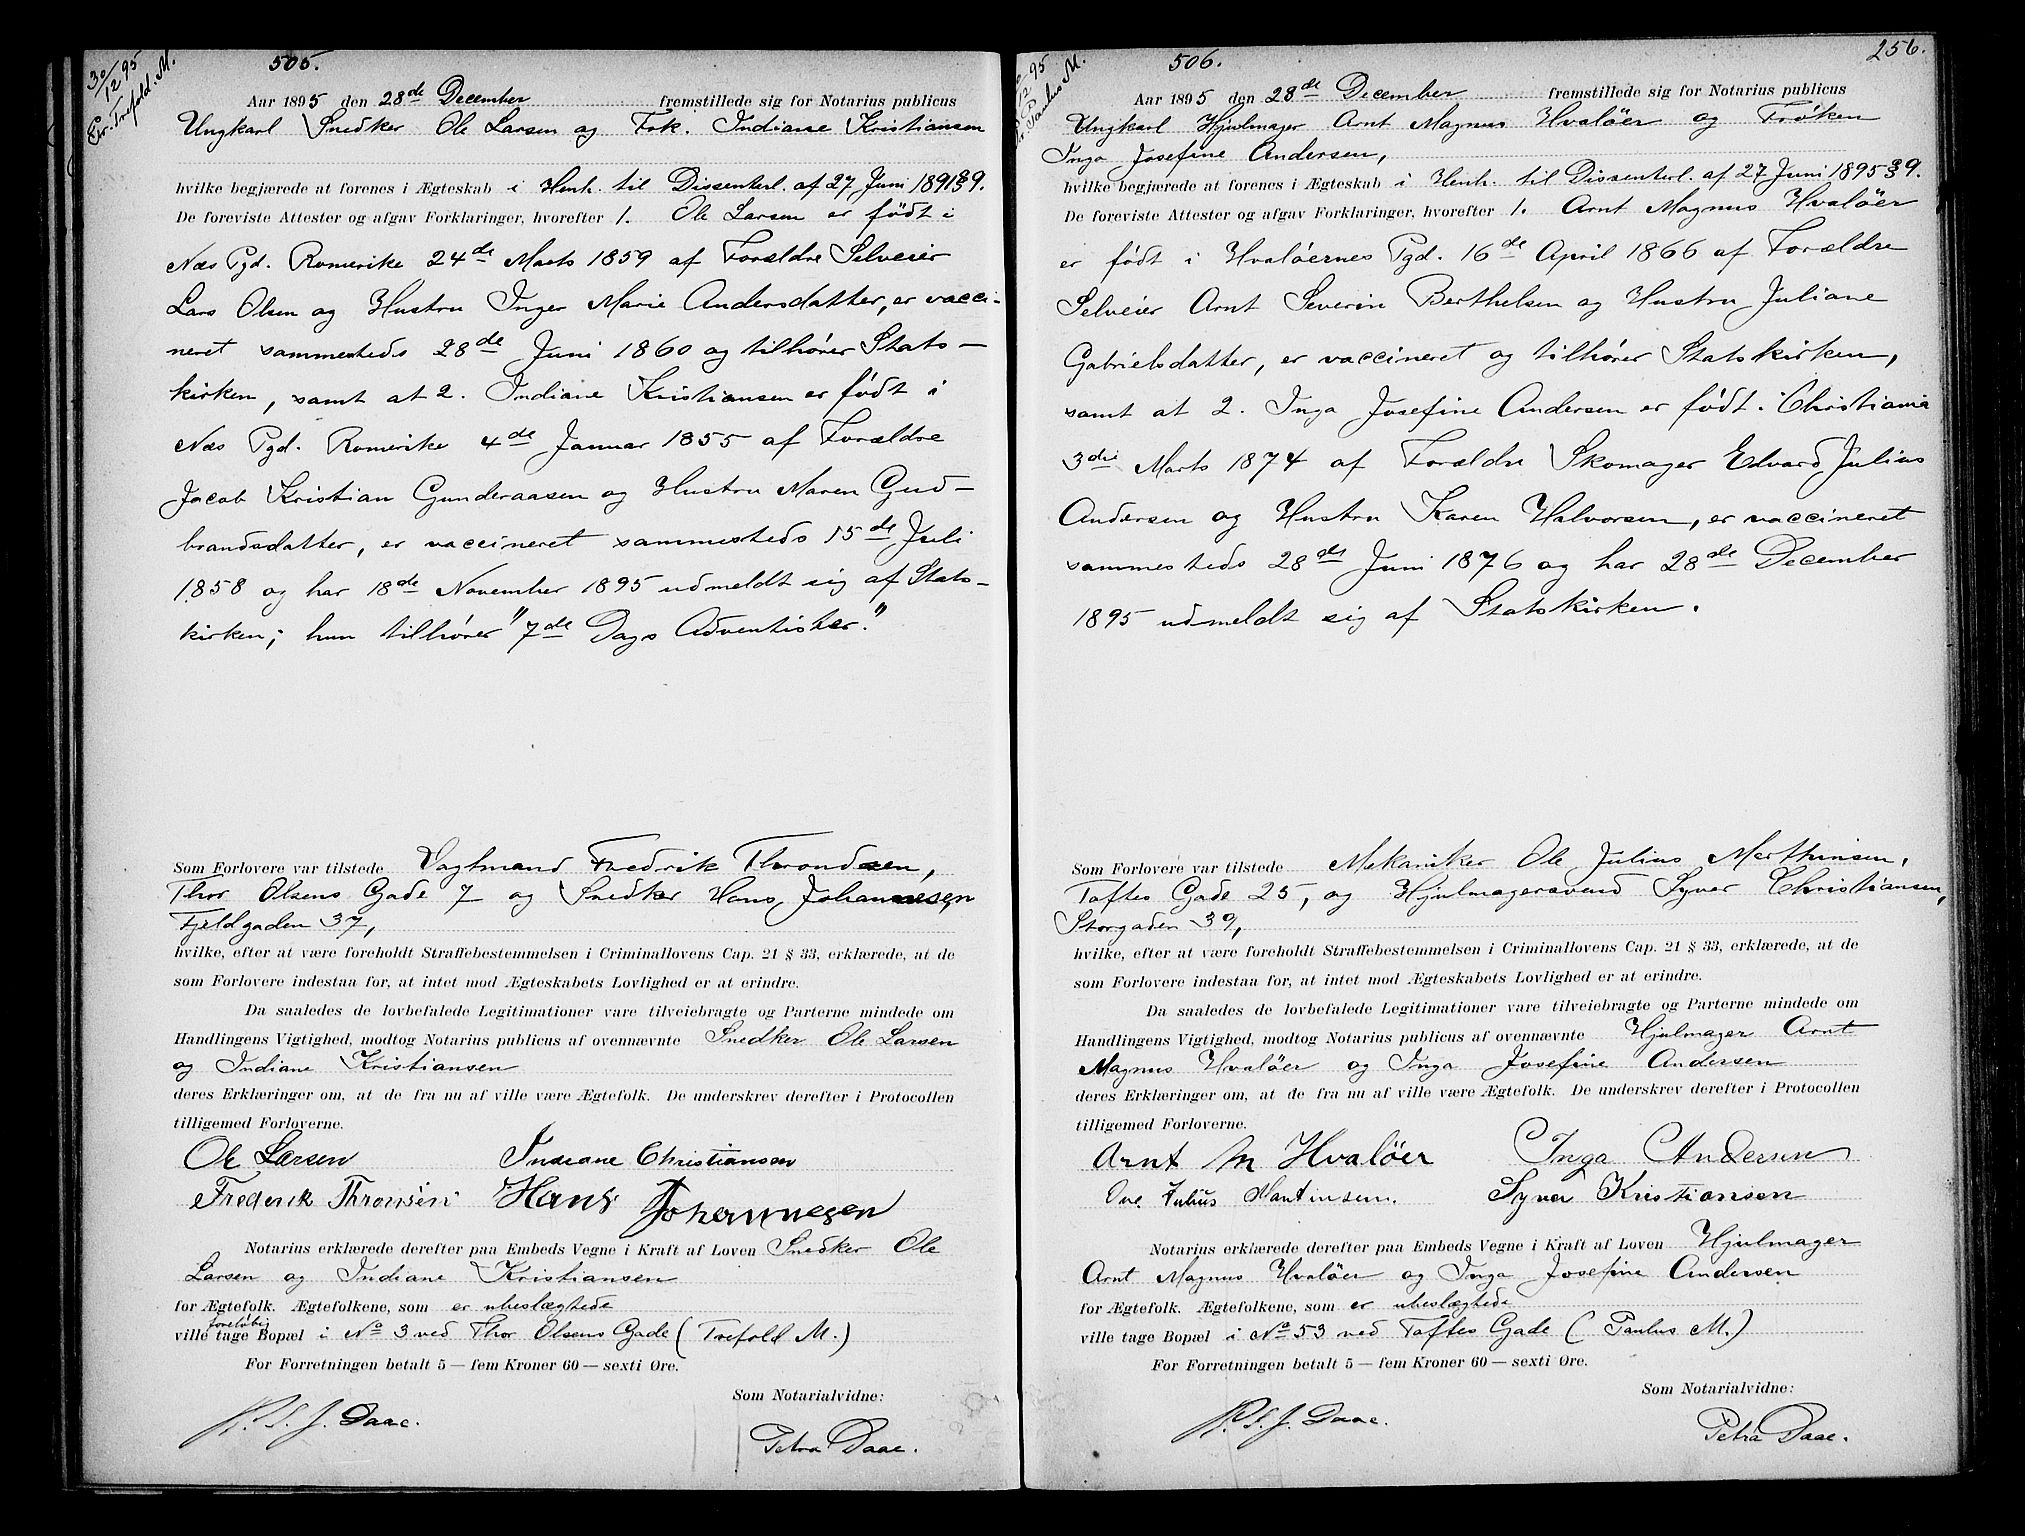 30/12 95
Ex. Trefold. M.
505.
Aar 1895 den 28de December fremstillede sig for Notarius publicus
Ungkarl Snedker Ole Larsen og Frk. Indiane Kristiansen
hvilke begjærede at forenes i Ægteskab i Henh. til Dissenterl. af 27 Juni 1891 § 9.
De foreviste Attester og afgav Forklaringer, hvorefter 1. Ole Larsen er født i
Næs Pgd. Romerike 24de Marts 1859 af Forældre Selveier
Lars Olsen og Hustru Inger Marie Andersdatter, er vacci-
neret sammesteds 28de Juni 1860 og tilhører Stats-
kirken, samt at 2. Indiane Kristiansen er født i
Næs Pgd. Romerike 4de Januar 1855 af Forældre
Jacob Kristian Gunderaasen og Hustru Maren Gud-
brandsdatter, er vaccineret sammesteds 15de Juli
1858 og har 18de November 1895 udmeldt sig af Stats-
kirken; hun tilhører "7de Dags Adventister."
Som Forlovere var tilstede Vagtmand Fredrik Throndsen,
Thor Olsens Gade 7 og Snedker Hans Johannesen
Fjeldgaden 37,
hvilke, efter at være foreholdt Straffebestemmelsen i Criminallovens Cap. 21 § 33, erklærede, at de
som Forlovere indestaa for, at intet mod Ægteskabets Lovlighed er at erindre.
Da saaledes de lovbefalede Legitimationer vare tilveiebragte og Parterne mindede om
Handlingens Vigtighed, modtog Notarius publicus af ovennævnte Snedker Ole Larsen
og Indiane Kristiansen
deres Erklæringer om, at de fra nu af ville være Ægtefolk. De underskrev derefter i Protocollen
tilligemed Forloverne.
Ole Larsen Indiane Christiansen
Frederik Thronsen Hans Johannesen
Notarius erklærede derefter paa Embeds Vegne i Kraft af Loven Snedker Ole
Larsen og Indiane Kristiansen
for Ægtefolk. Ægtefolkene, som er ubeslægtede
foreløbig
ville tage Bopæl i No 3 ved Thor Olsens Gade (Trefold M.)
For Forretningen betalt 5 — fem Kroner 60 — sexti Øre.
Som Notarialvidne:
J. Daae.
Petra Daae.
95
Paulus M.
506.
256.
Aar 1895 den 28de December fremstillede sig for Notarius publicus
Ungkarl Hjulmager Arnt Magnus Hvaløer og Frøken
Inga Josefine Andersen,
hvilke begjærede at forenes i Ægteskab i Henh. til Dissenterl. af 27 Juni 1895 § 9.
De foreviste Attester og afgav Forklaringer, hvorefter 1. Arnt Magnus Hvaløer
er født i Hvaløernes Pgd. 16de April 1866 af Forældre
Selveier Arnt Severin Berthelsen og Hustru Juliane
Gabrielsdatter, er vaccineret og tilhører Statskirken,
samt at 2. Inga Josefine Andersen er født i Christiania
3die Marts 1874 af Forældre Skomager Edvard Julius
Andersen og Hustru Karen Halvorsen, er vaccineret
sammesteds 28de Juni 1876 og har 28de December
1895 udmeldt sig af Statskirken.
Som Forlovere var tilstede Mekaniker Ole Julius Marthinsen,
Toftes Gade 25, og Hjulmagersvend Syver Christiansen,
Storgaden 39,
hvilke, efter at være foreholdt Straffebestemmelsen i Criminallovens Cap. 21 § 33, erklærede, at de
som Forlovere indestaa for, at intet mod Ægteskabets Lovlighed er at erindre.
Da saaledes de lovbefalede Legitimationer vare tilveiebragte og Parterne mindede om
Handlingens Vigtighed, modtog Notarius publicus af ovennævnte Hjulmager Arnt
Magnus Hvaløer og Inga Josefine Andersen
deres Erklæringer om, at de fra nu af ville være Ægtefolk. De underskrev derefter i Protocollen
tilligemed Forloverne.
Arnt M Hvaløer Inga Andersen
Julius Martinsen. Syver Kristiansen
Notarius erklærede derefter paa Embeds Vegne i Kraft af Loven Hjulmager
Arnt Magnus Hvaløer og Inga Josefine Andersen
for Ægtefolk. Ægtefolkene, som er ubeslægtede
ville tage Bopæl i No 53 ved Toftes Gade (Paulus M.)
For Forretningen betalt 5 — fem Kroner 60 — sexti Øre.
Som Notarialvidne:
J. Daae.
Petra Daae.